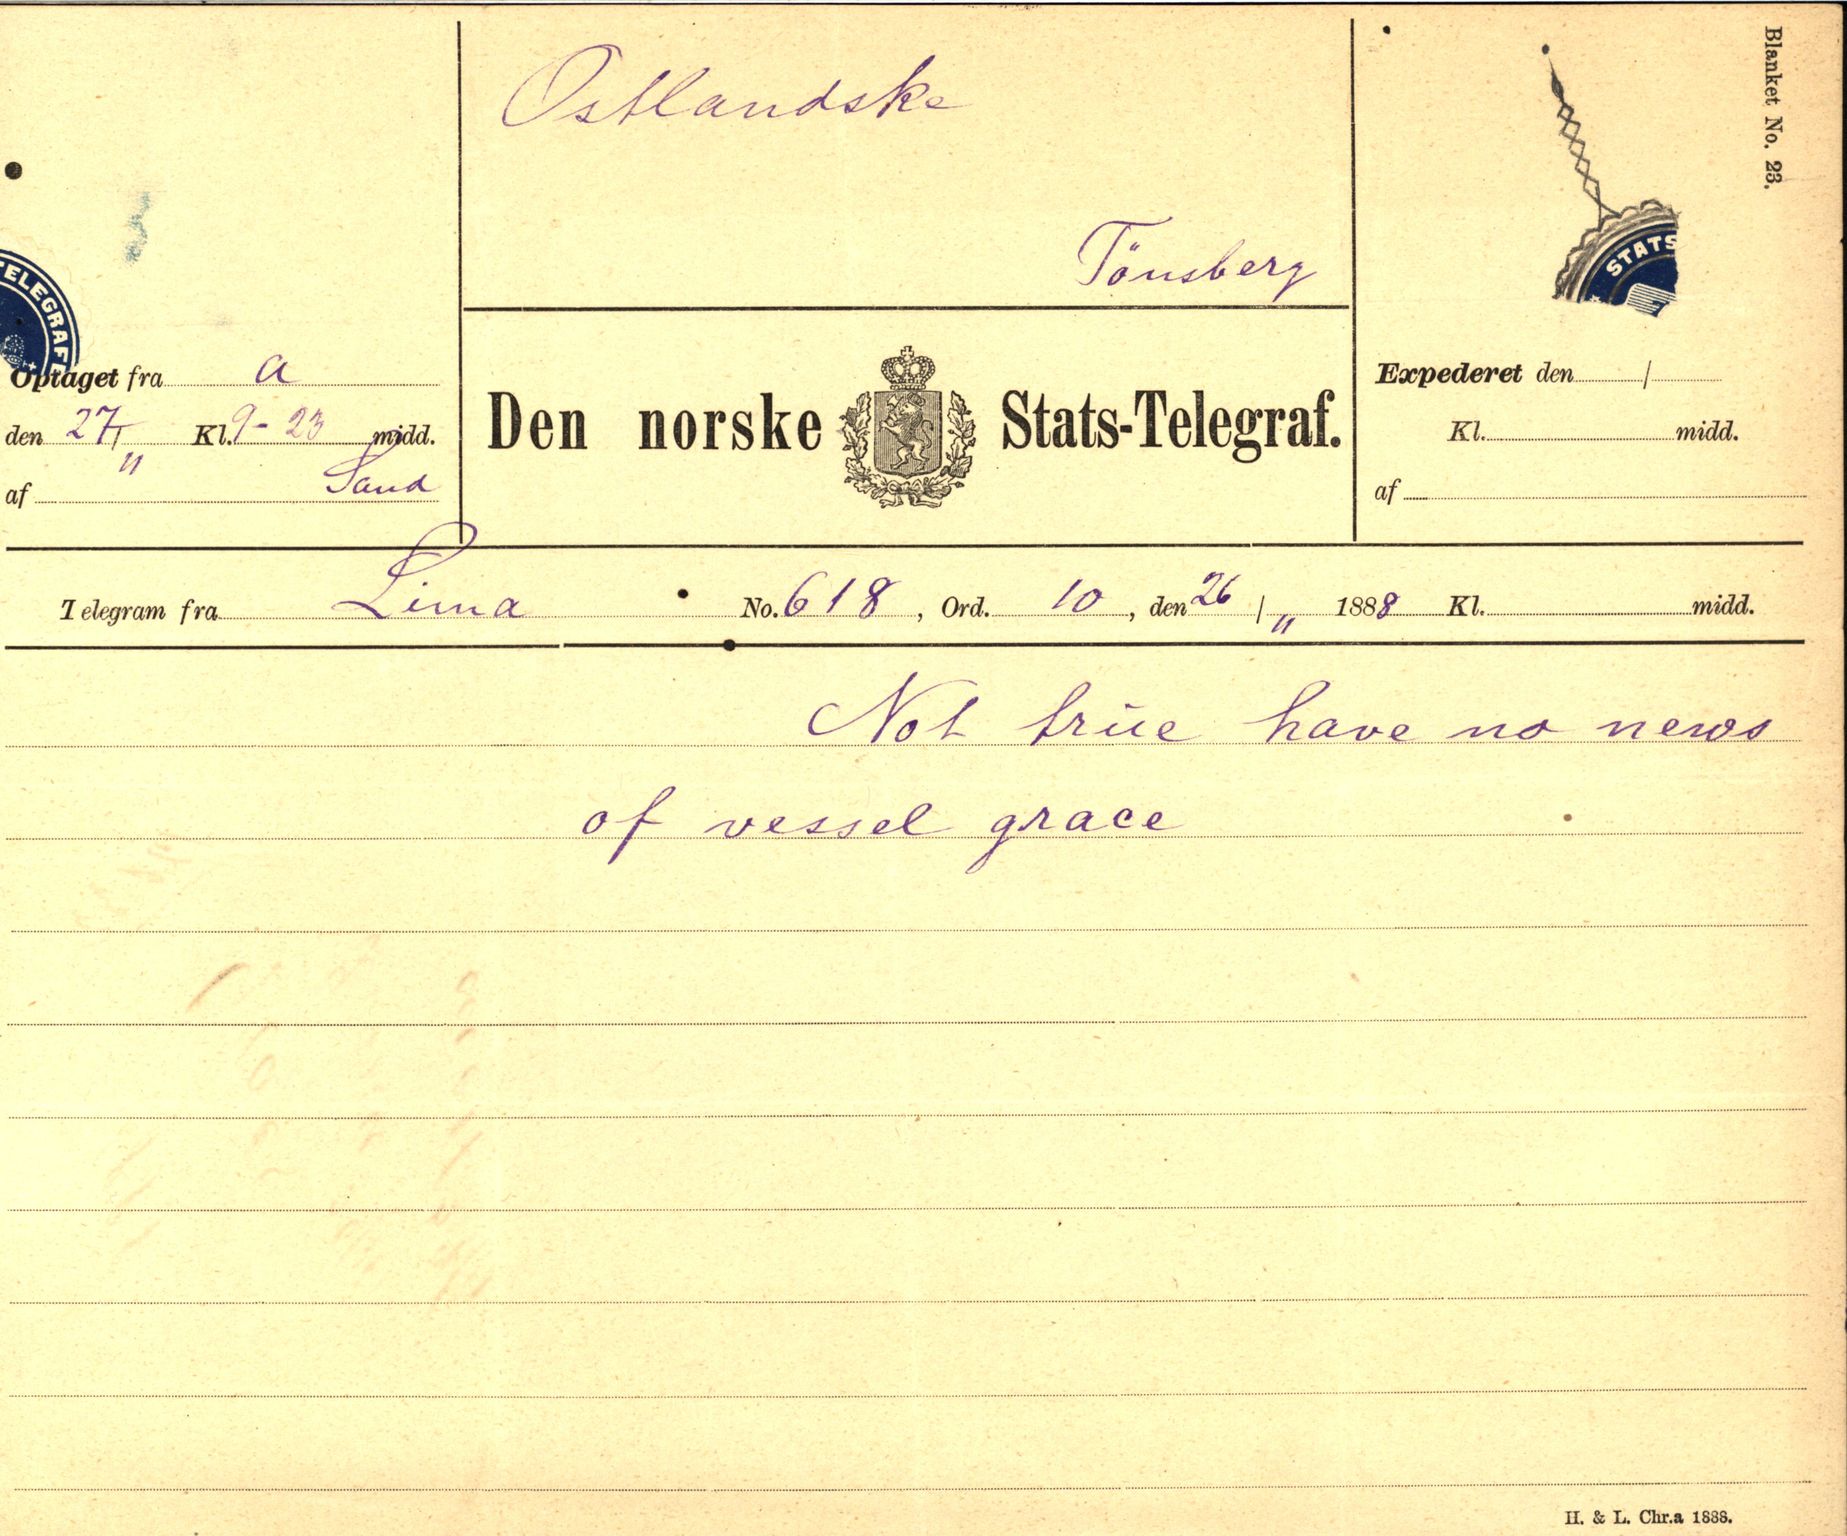 Blanket No. 23.
Ostlandske
Tönsberg
TELEGRAF
STATS
Optaget fra a
den 27/11 Kl. 9-23 midd.
af Sand
Den norske Stats-Telegraf.
Expederet den /
Kl. midd.
af
Telegram fra Lima No. 618, Ord. 10, den 26/11 1888 Kl. midd.
Not true have no news
of vessel grace
H. & L. Chr.a 1888.